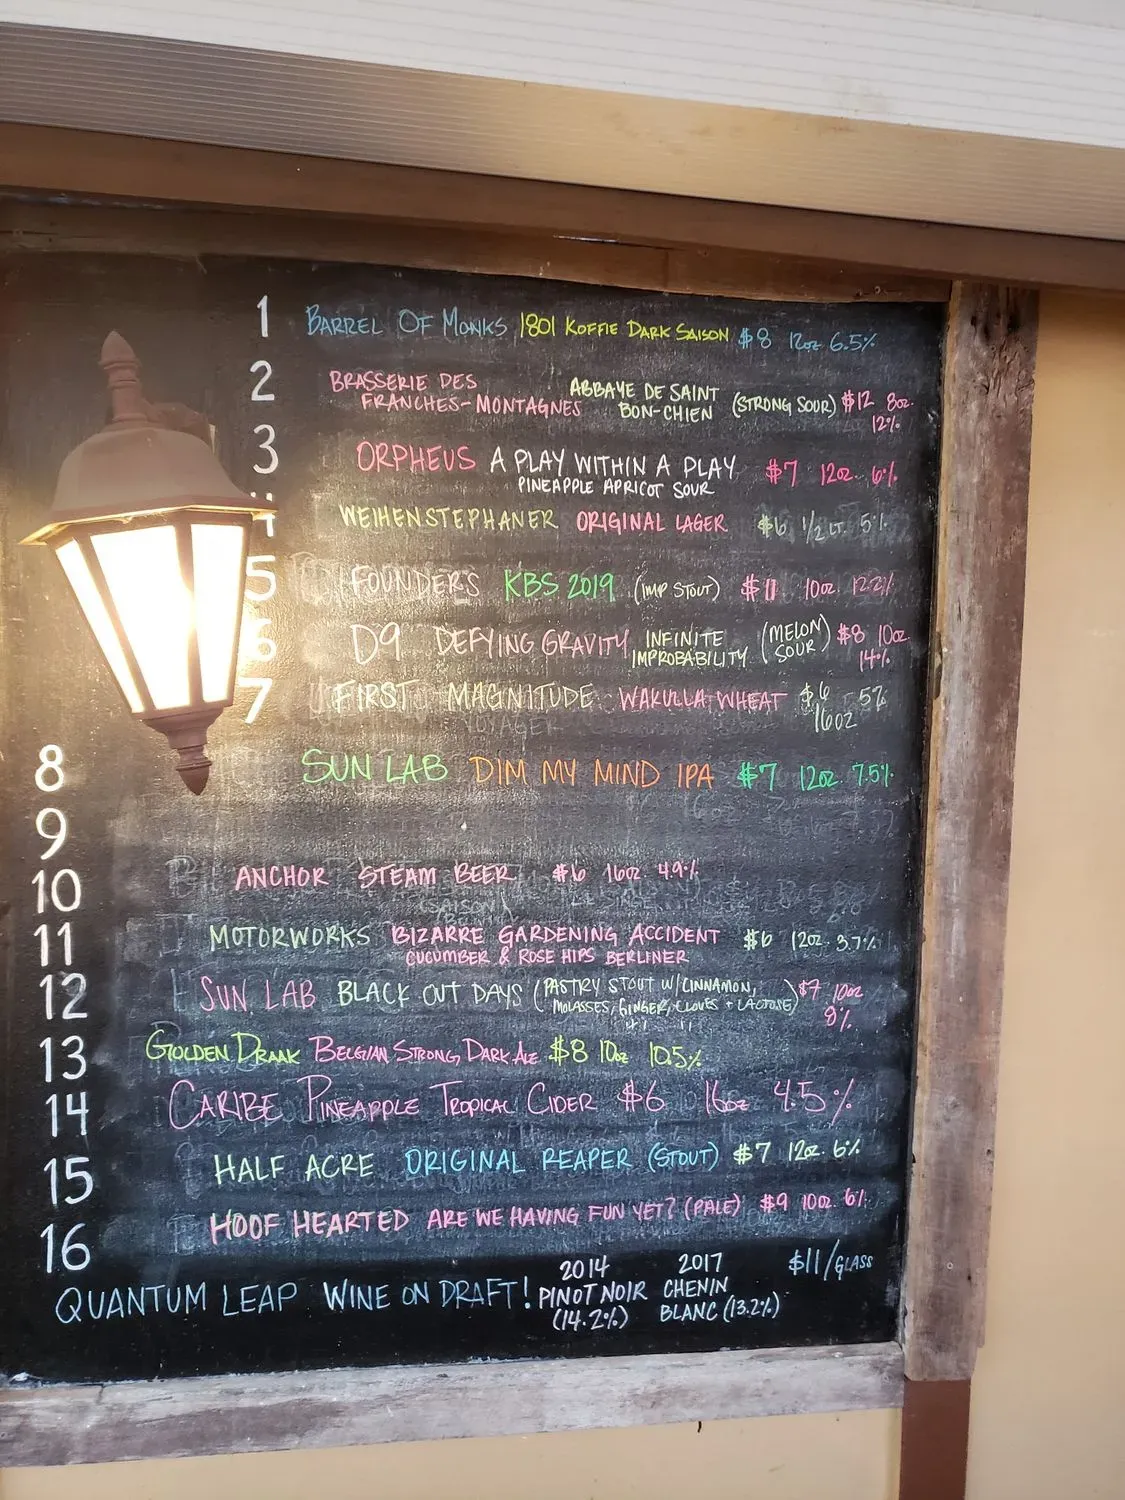 1 BARREL OF MONKS 1801 KOFFIE DARK SAISON $8 12oz 6.5%
2 BRASSERIE DES FRANCHES-MONTAGNES ABBAYE DE SAINT BON-CHIEN (STRONG SOUR) $12 8oz. 12%
3 ORPHEUS A PLAY WITHIN A PLAY $7 12oz. 6%
PINEAPPLE APRICOT SOUR
4 WEIHENSTEPHANER ORIGINAL LAGER $6 1/2 LT. 5%
5 FOUNDERS KBS 2019 (IMP STOUT) $11 10oz 12.2%
6 D9 DEFYING GRAVITY INFINITE IMPROBABILITY (MELON SOUR) $8 10oz. 14%
7 FIRST MAGNITUDE WAKULLA WHEAT $6 5%
16oz
VOYAGER
8 SUN LAB DIM MY MIND IPA $7 12oz 7.5%
9
10 ANCHOR STEAM BEER $6 16oz 4.9%
(SAISON)
11 MOTORWORKS BIZARRE GARDENING ACCIDENT $6 12oz. 3.7%
CUCUMBER & ROSE HIPS BERLINER
12 SUN LAB BLACK OUT DAYS (PASTRY STOUT W/CINNAMON, MOLASSES, GINGER, CLOVES + LACTOSE) $7 10oz 8%
13 GOLDEN DRAAK BELGIAN STRONG DARK ALE $8 10oz 10.5%
14 CARIBE PINEAPPLE TROPICAL CIDER $6 16oz 4.5%
15 HALF ACRE ORIGINAL REAPER (STOUT) $7 12oz. 6%
16 HOOF HEARTED ARE WE HAVING FUN YET? (PALE) $9 10oz. 6%
QUANTUM LEAP WINE ON DRAFT! 2014 PINOT NOIR (14.2%) 2017 CHENIN BLANC (13.2%) $11/GLASS